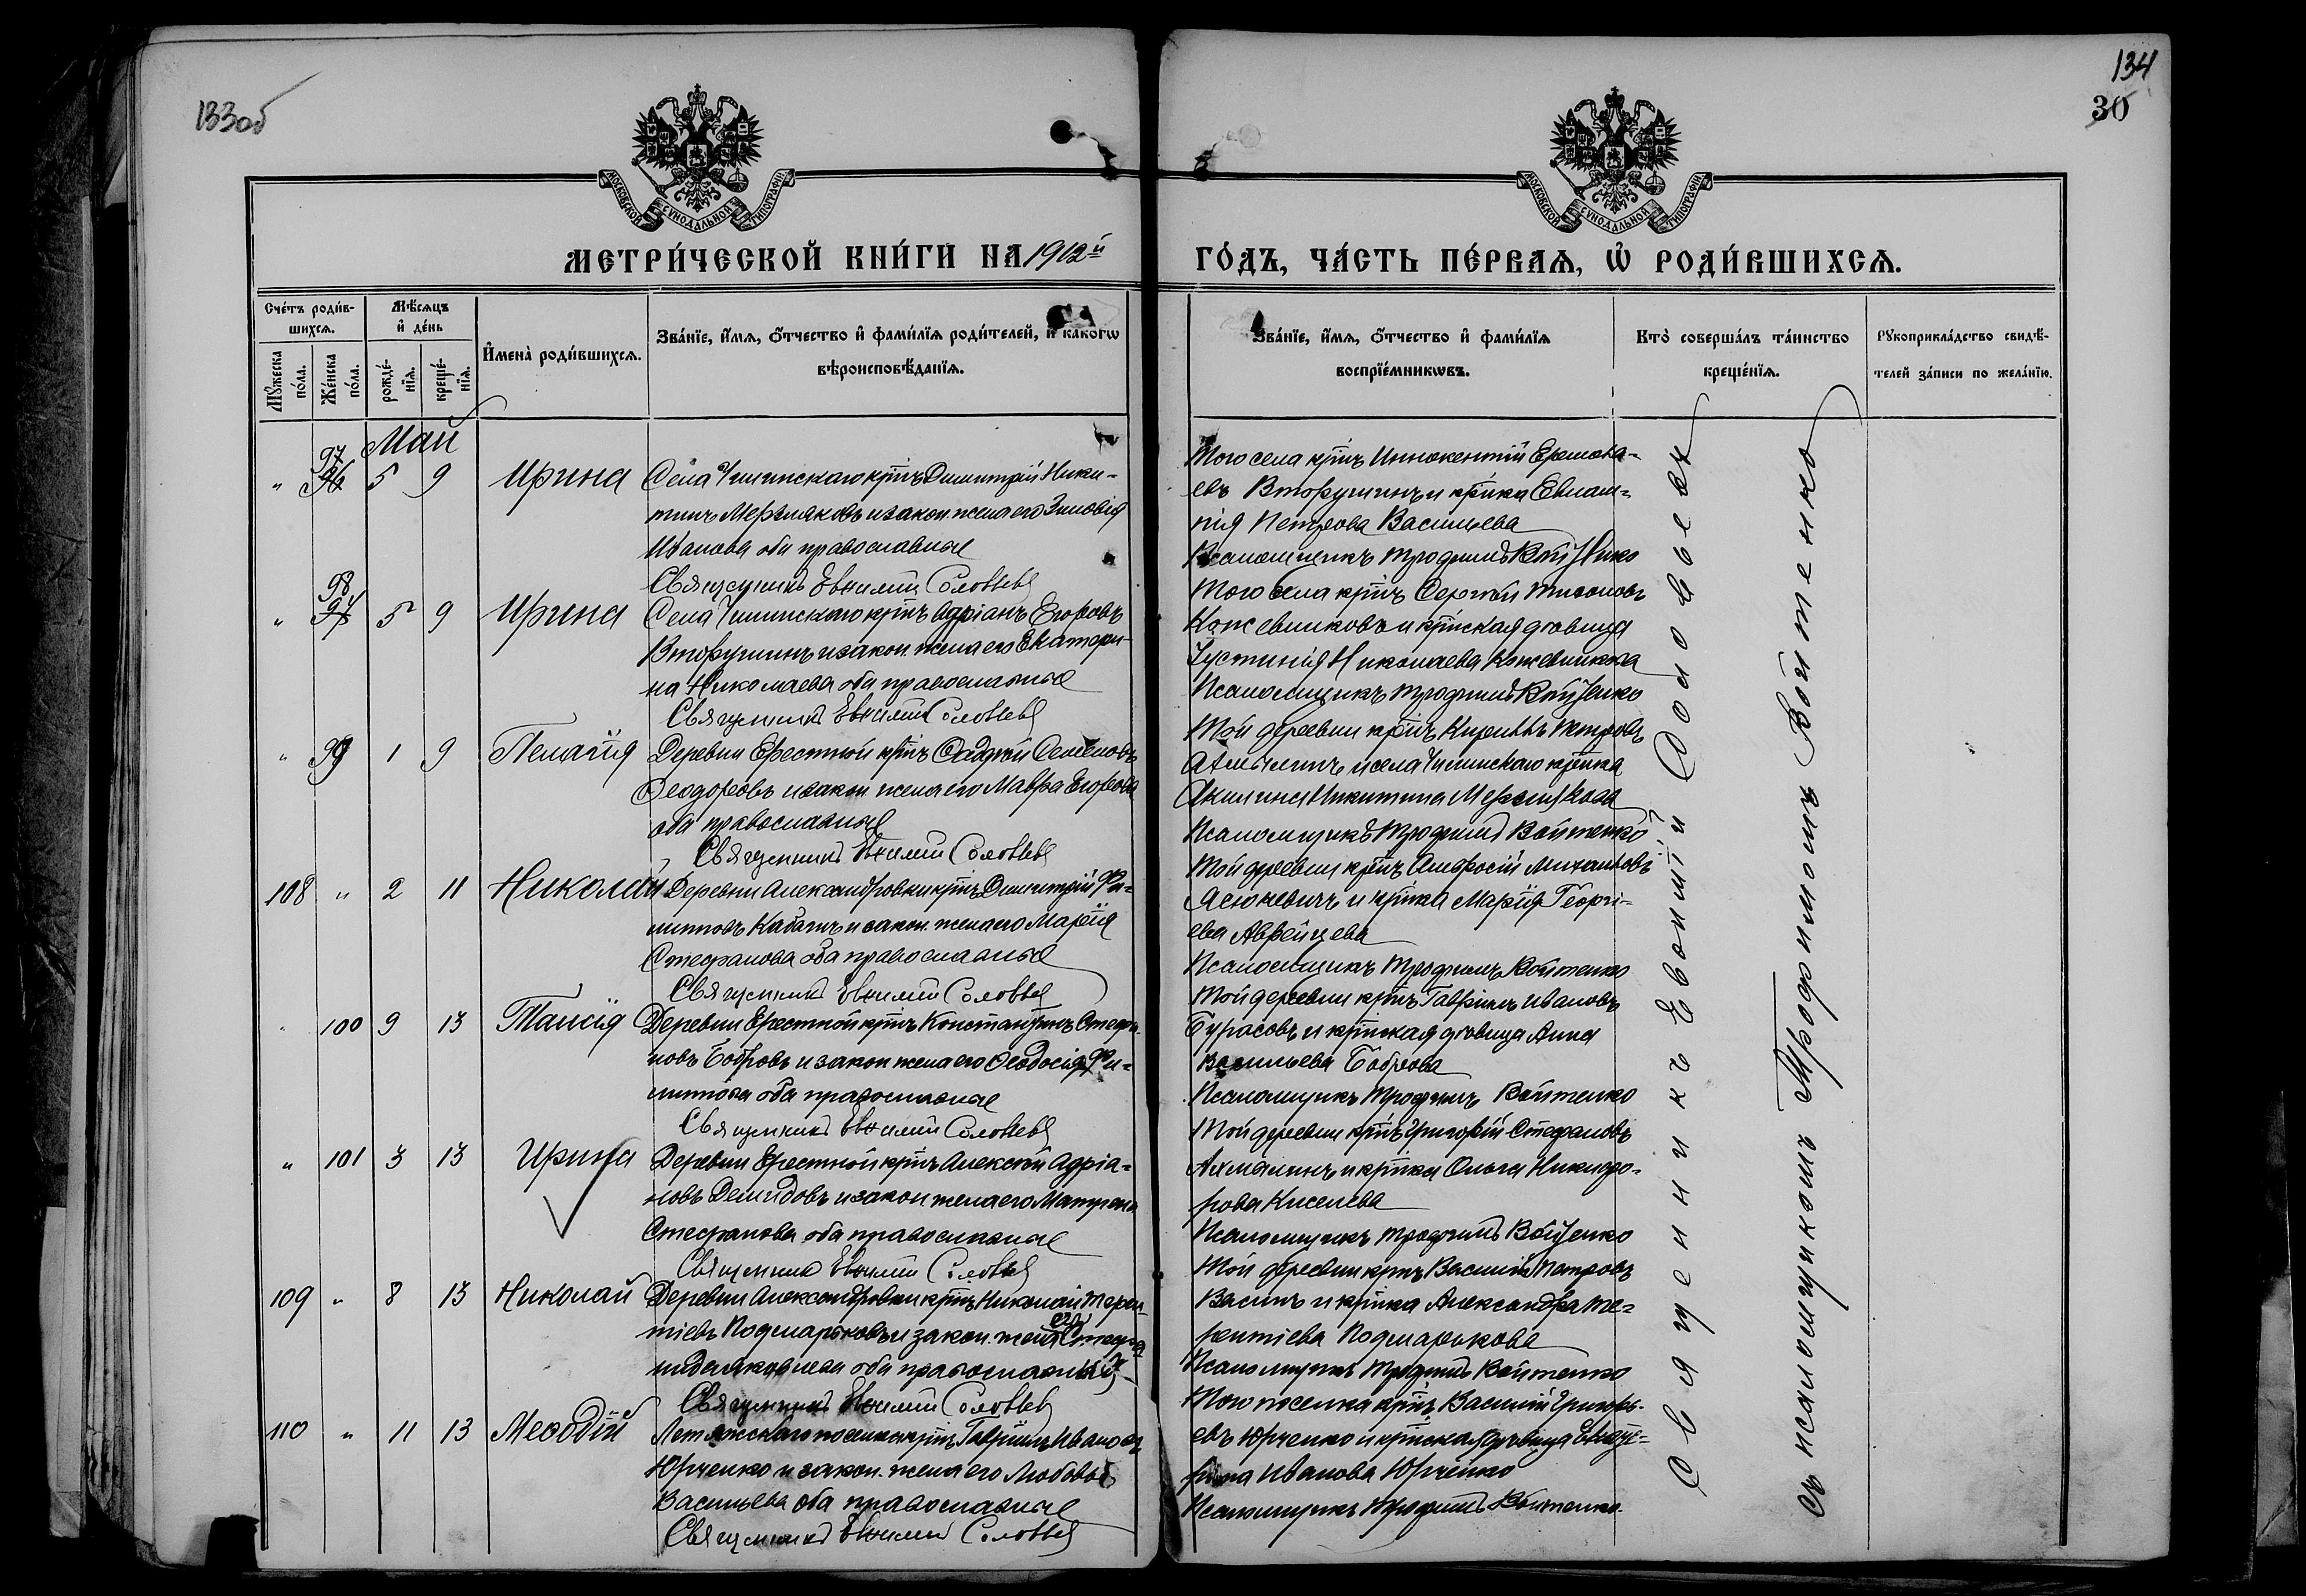 133об
134
30
МОСКОВСКОЙ СѴНОДАЛЬНОЙ ТИПОГРАФІИ
МОСКОВСКОЙ СѴНОДАЛЬНОЙ ТИПОГРАФІИ
МЕТРИ́ЧЕСКОЙ КНИ́ГИ НА 1912й
ГО́ДЪ, ЧА́СТЬ ПЕ́РВАѦ, Ѡ РОДИ́ВШИХСѦ.
Сче́тъ роди́в-
шихсѧ.
Мѣ́сѧцъ
и҆ де́нь
Мꙋ́жеска по́ла.
Же́нска по́ла.
рожде́-нїѧ.
креще́-нїѧ.
И҆мена̀ роди́вшихсѧ.
Зва́нїе, и҆́мѧ, ѻ҆́тчество и҆ фами́лїѧ роди́телей, и҆ какогѡ
вѣроисповѣ́данїѧ.
Зва́нїе, и҆́мѧ, ѻ҆́тчество и҆ фами́лїѧ
воспрїе́мникѡвъ.
Кто̀ соверша́лъ та́инство
креще́нїѧ.
Рꙋкоприкла́дство свидѣ́-
телей за́писи по жела́нїю.
Май
97
" 96 5 9 Ирина Села Чилинскаго крнъ Димитрій Ники-
тинъ Мерзляковъ и закон. жена его Зиновія
Иванова оба православные
Священникъ Евѳимій Соловьевъ
Того села крнъ Иннокентій Ермола-
евъ Вторушинъ и крнка Евлам-
пія Петрова Васильева
Псаломщикъ Трофимъ Войтенко
98
" 97 5 9 Ирина Села Чилинскаго крнъ Адріанъ Егоровъ
Вторушинъ и закон. жена его Екатери-
на Николаева оба православные
Священникъ Евѳимій Соловьевъ
Того села крнъ Сергѣй Тихоновъ
Кожевниковъ и крнская дѣвица
Іустинія Николаева Кожевникова
Псаломщикъ Трофимъ Войтенко
" 99 1 9 Пелагія Деревни Ерестной крнъ Семеновъ
Ѳеодоровъ и закон жена его Мавра Егорова
оба православные
Священникъ Евѳимій Соловьевъ
Той деревни крнъ Кириллъ Петровъ
и села Чилинскаго крнка
Акилина Никитина Мерзлякова
Псаломщикъ Трофимъ Войтенко
108 " 2 11 Николай Деревни Александровки крнъ Димитрій Фи-
липповъ и закон. жена его Марія
Стефанова оба православные
Священникъ Евѳимій Соловьевъ
Той деревни крнъ Амвросій Михаиловъ
Ясюкевичъ и крнка Марія Георгі-
ева Аврейцева
Псаломщикъ Трофимъ Войтенко
" 100 9 13 Таисія Деревни Ерестной крнъ Константинъ Стефа-
новъ Бобровъ и закон жена его Ѳеодосія Фи-
липпова оба православные
Священникъ Евѳимій Соловьевъ
Той деревни крнъ Гавріилъ Ивановъ
Бурасовъ и крнская дѣвица Анна
Васильева Боброва
Псаломщикъ Трофимъ Войтенко
" 101 3 13 Ирина Деревни Ерестной крнъ Алексѣй Адріа-
новъ Демидовъ и закон жена его Матрена
Стефанова оба православные
Священникъ Евѳимій Соловьевъ
Той деревни крнъ Григорій Стефановъ
Ахмалинъ и крнка Ольга Никифо-
рова Киселева
Псаломщикъ Трофимъ Войтенко
109 " 8 13 Николай Деревни Александровки крнъ Николай Терен-
тіевъ Подмарьковъ и закон. жена его Стефа-
нида Яковлева оба православные
Священникъ Евѳимій Соловьевъ
Той деревни крнъ Василій Петровъ
Васинъ и крнка Александра Те-
рентіева Подмарькова
Псаломщикъ Трофимъ Войтенко
110 " 11 13 Меѳодій Летяжскаго поселка крнъ Гавріилъ Ивановъ
Юрченко и закон. жена его Любовь
Васильева оба православные
Священникъ Евѳимій Соловьевъ
Того поселка крнъ Василій Григорь-
евъ Юрченко и крнская дѣвица Екате-
рина Иванова Юрченко
Псаломщикъ Трофимъ Войтенко.
Священникъ Евѳимій Соловьевъ
съ псаломщикомъ Трофимомъ Войтенко